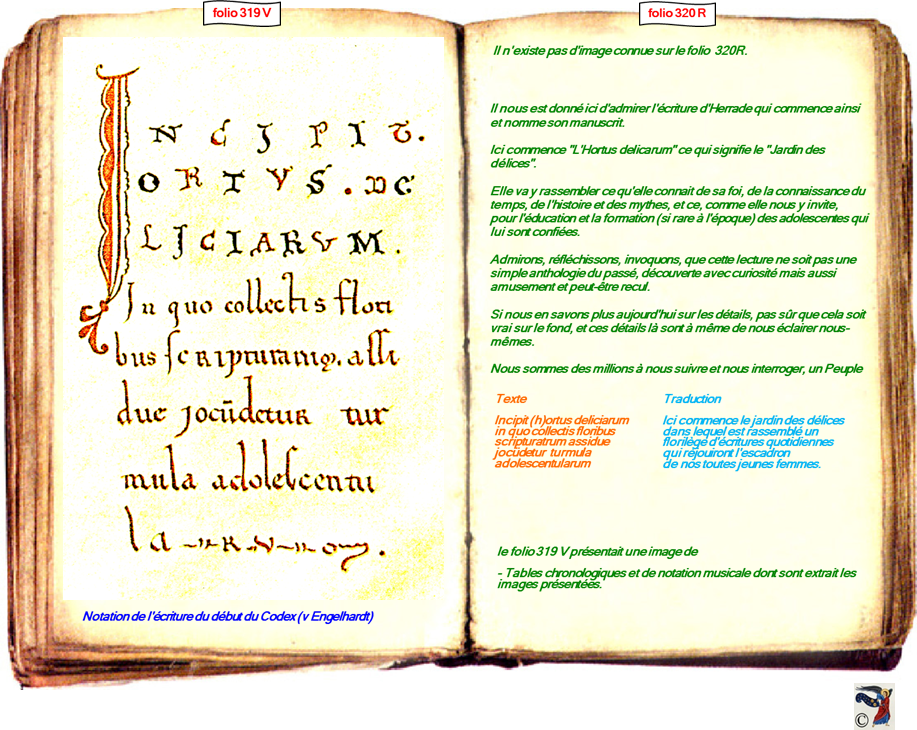 folio 319 V
INCIPIT.
ORTVS. DE
LICIARVM.
In quo collectis flori
bus scripturarum. assi
due jocūdetur tur
mula adolescentu
la-rum.
Notation de l'écriture du début du Codex (v Engelhardt)
folio 320 R
Il n'existe pas d'image connue sur le folio 320R.
Il nous est donné ici d'admirer l'écriture d'Herrade qui commence ainsi
et nomme son manuscrit.
Ici commence "L'Hortus delicarum" ce qui signifie le "Jardin des
délices".
Elle va y rassembler ce qu'elle connait de sa foi, de la connaissance du
temps, de l'histoire et des mythes, et ce, comme elle nous y invite,
pour l'éducation et la formation (si rare à l'époque) des adolescentes qui
lui sont confiées.
Admirons, réfléchissons, invoquons, que cette lecture ne soit pas une
simple anthologie du passé, découverte avec curiosité mais aussi
amusement et peut-être recul.
Si nous en savons plus aujourd'hui sur les détails, pas sûr que cela soit
vrai sur le fond, et ces détails là sont à même de nous éclairer nous-
mêmes.
Nous sommes des millions à nous suivre et nous interroger, un Peuple
Texte
Incipit (h)ortus deliciarum
in quo collectis floribus
scripturatrum assidue
jocūdetur turmula
adolescentularum
Traduction
Ici commence le jardin des délices
dans lequel est rassemblé un
florilège d'écritures quotidiennes
qui réjouiront l'escadron
de nos toutes jeunes femmes.
le folio 319 V présentait une image de
- Tables chronologiques et de notation musicale dont sont extrait les
images présentées.
©